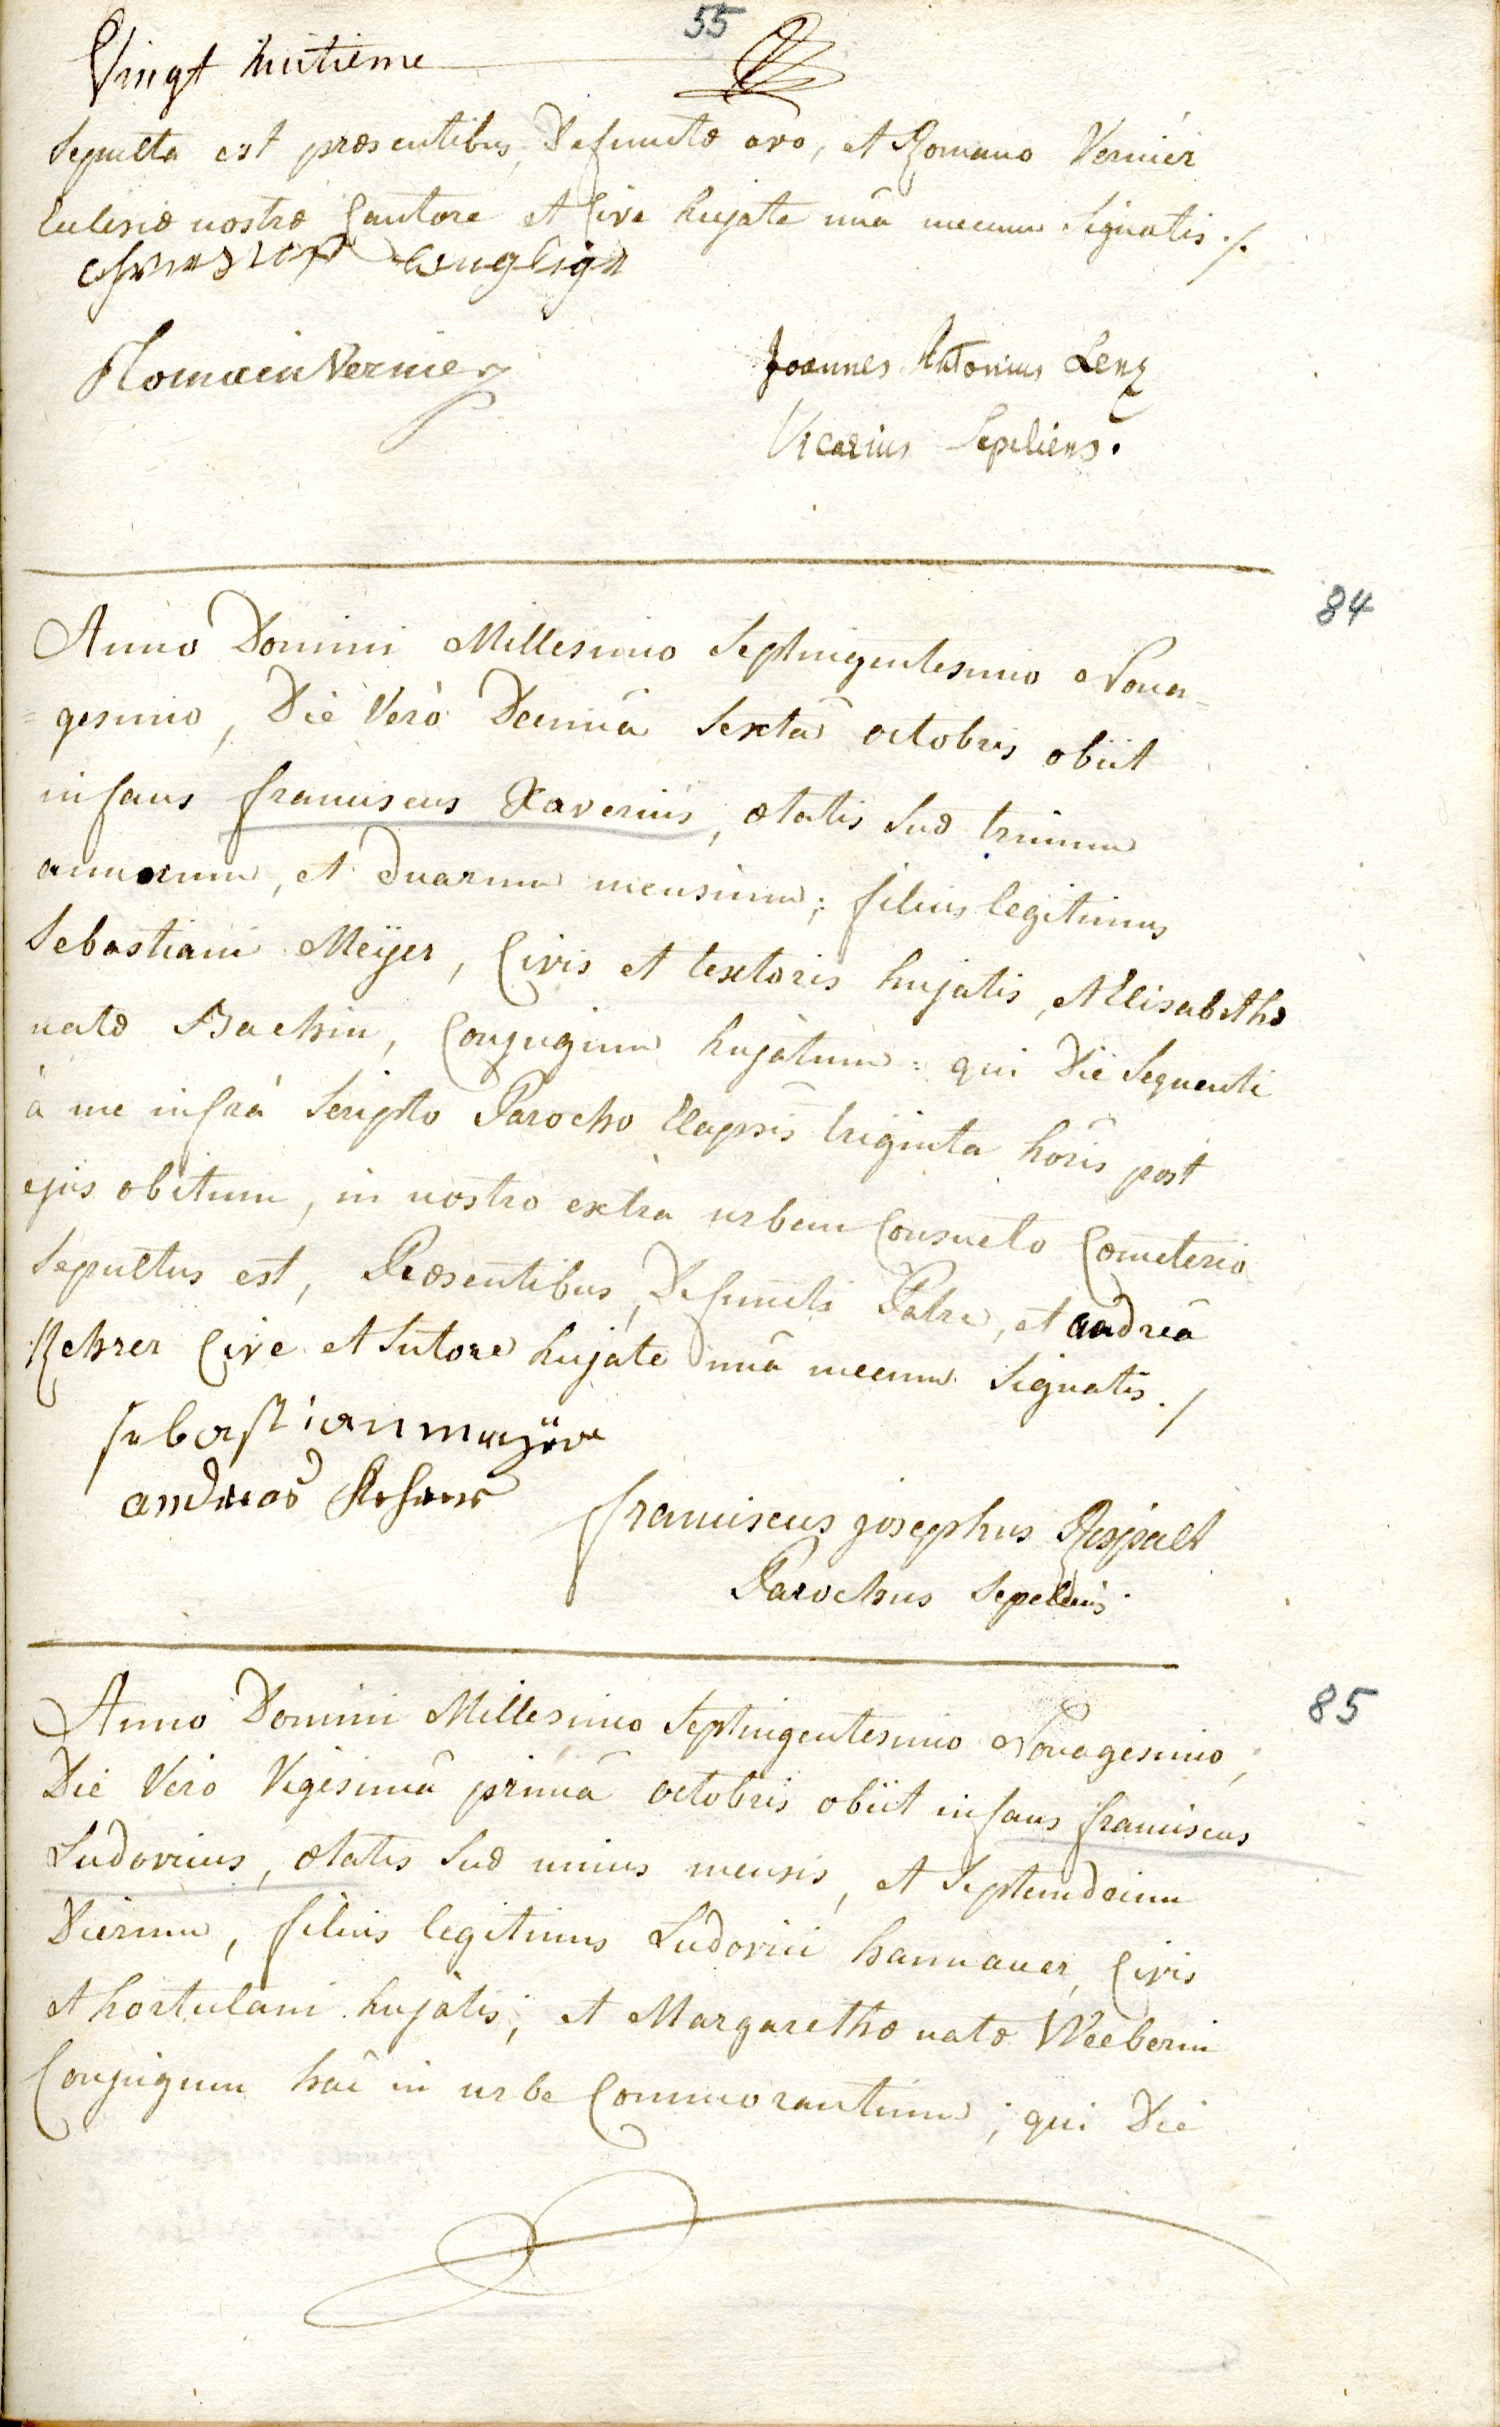 55
Vingt huitieme
Sepulta est præsentibus, Defunctæ avo, et Romano Vernier
Ecclesiæ nostræ Cantore et Cive hujate unà mecum signatis ./.
Romain Vernier
Joannes Antonius Lenz
Vicarius Sepeliens.
84
Anno Domini Millesimo Septingentesimo Nona=
=gesimo, Die Verò Decimâ Sextâ octobris obiit
infans franciscus Xaverius, ætatis suæ trium
annorum, et duarum mensium; filius legitimus
Sebastiani Meÿer, Civis et textoris hujatis, et Elisabethæ
natæ Bachin, Conjugum hujatum: qui Die Sequenti
à me infrà Scripto Parocho Elapsis triginta horis post
ejus obitum, in nostro extra urbem Consueto Cœmeterio
Sepultus est, Præsentibus, Defuncti Patre, et andreâ
Rehrer Cive et Sutore hujate unâ mecum Signatis ./
sebastian meÿer
andreas Rehrer
franciscus josephus Rispalt
Parochus Sepeliens.
85
Anno Domini Millesimo Septingentesimo Nonagesimo,
Die Vero Vigesimâ primâ octobris obiit infans franciscus
Ludovicus, ætatis Suæ unius mensis, et Septemdecim
Dierum, filius legitimus Ludovici hannauer, Civis
et hortulani hujatis, et Margarethæ natæ Weeberin
Conjugum hac in urbe Commorantium; qui Die